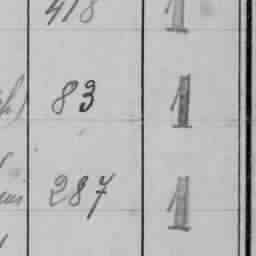 418 1
83 1
287 1